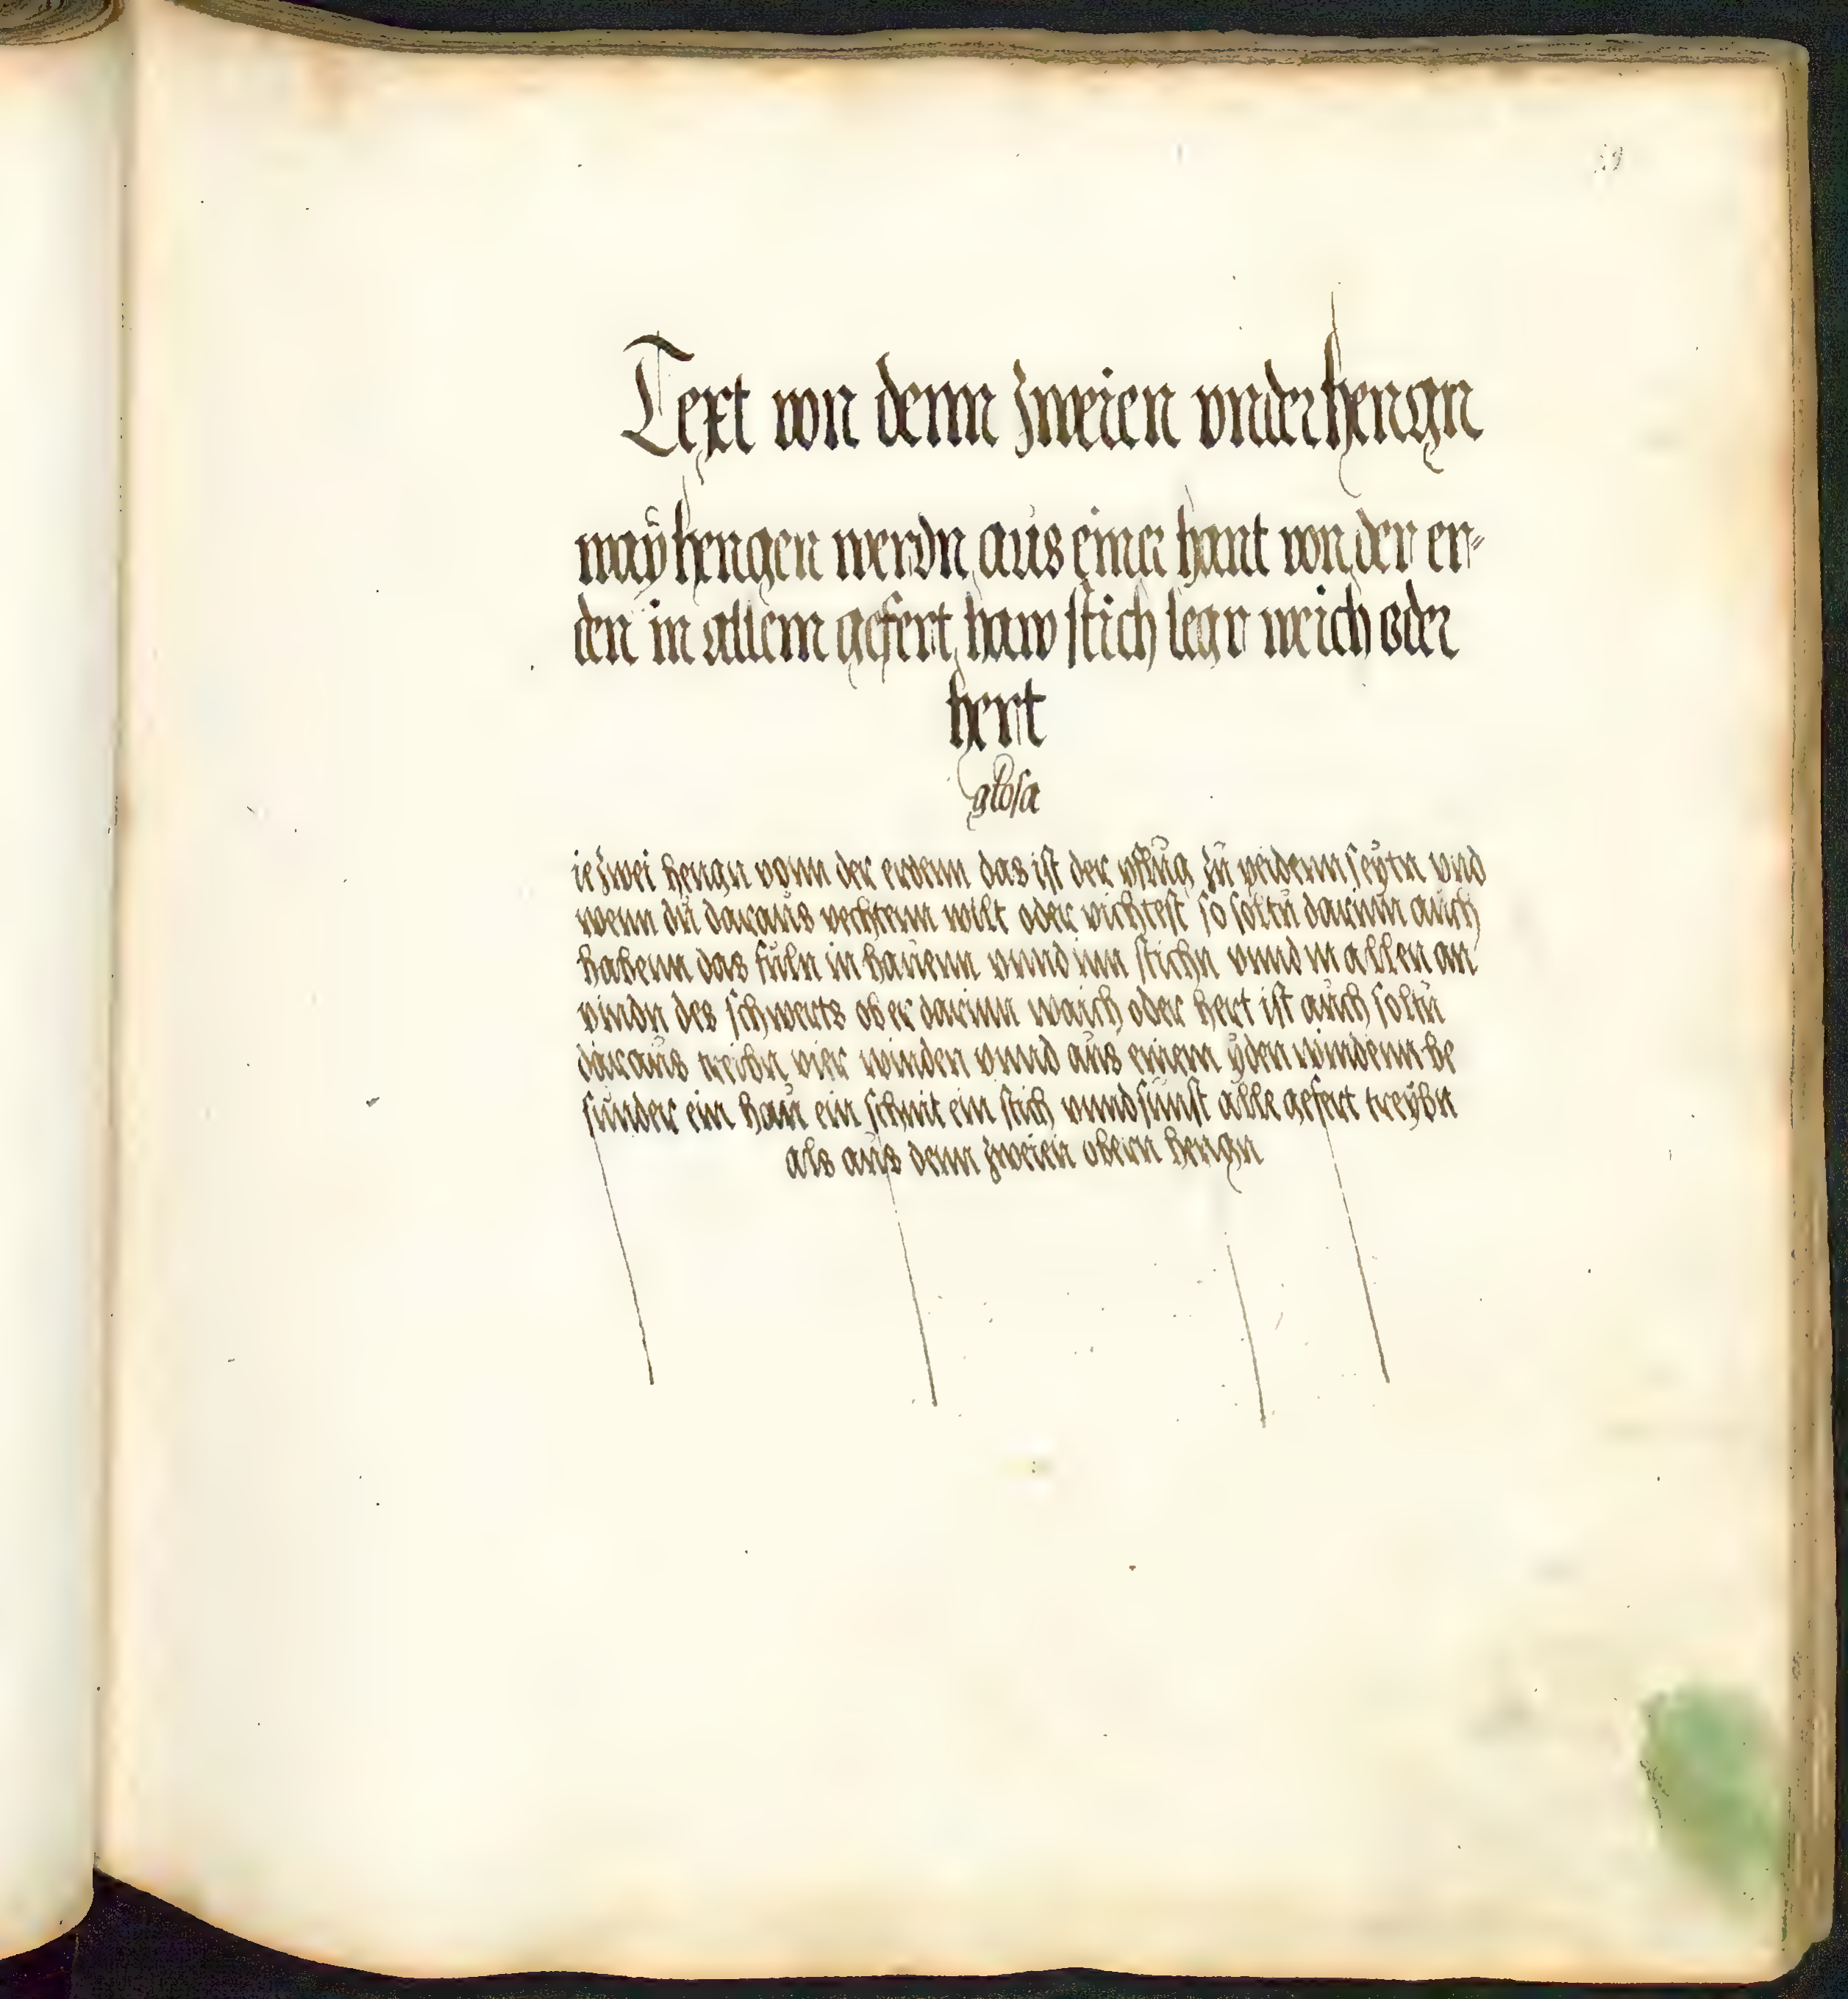 Text von denn zweien vnderhengn
way hengen werdn aus einer hant von der er-
den in allem gefert haw stich legr weich oder
hert
glosa
ie zwei hengn vonn der erdenn das ist der pflug zu peidenn seytn vnd
wenn du daraus vechtenn wilt oder vichtest so soltu darinn auch
habenn das fuln in hauenn vnnd inn stichn vnnd in allen an
pindn des schwerts ob er darinn waich oder hert ist auch soltu
daraus treibn vier winden vnnd aus einem yden windenn be
sunder ein hau ein schnit ein stich vnnd sunst alle gefert treybn
als aus denn zweien obern hengn